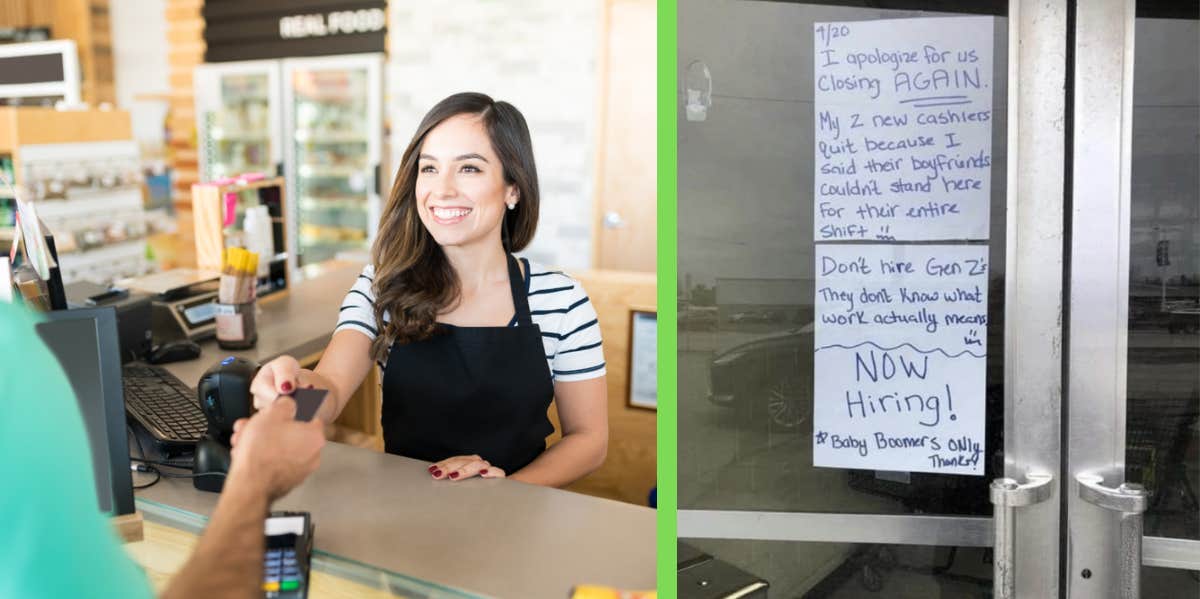 REAL FOOD
4/20
I apologize for us
Closing AGAIN.
My 2 new cashiers
quit because I
said their boyfriends
couldn't stand here
for their entire
shift
Don't hire Gen Z's
They don't know what
work actually means
NOW
Hiring!
☆ Baby Boomers ONLY
Thanks!